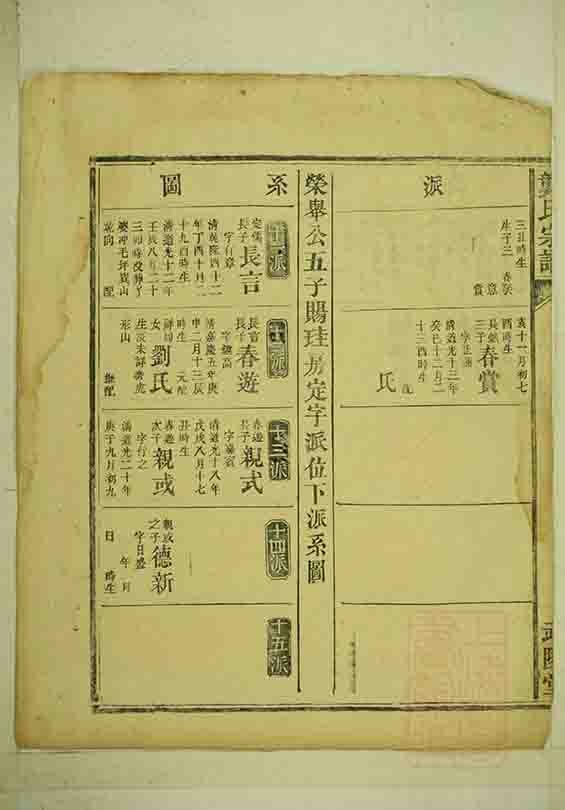 龔氏宗譜
武陵堂
派
三丑時生
生子三 春泰
意
賞
亥十一月初七
酉時生
長
三子
春賞
清道光十三年
癸巳十二月二
十三酉時生
配
氏
榮舉公五子賜珪房定字派位下派系圖
系
圖
十一派
定儒
長子
長言
字行章
清乾隆四十二
年丁酉十月二
十九酉時生
清道光十二年
壬辰八月二十
三
配
十二派
長言
長子
春遊
字
清嘉慶五年庚
申二月十三辰
時生 元配
女
劉氏
生
形山
繼配
十三派
春遊
長子
親式
字嘉賓
清道光十八年
戊戌八月十七
丑時生
春遊
次子
親或
字行之
清道光二十年
庚子九月初九
十四派
親或
之子
德新
字日盛
年 月
日 時生
十五派